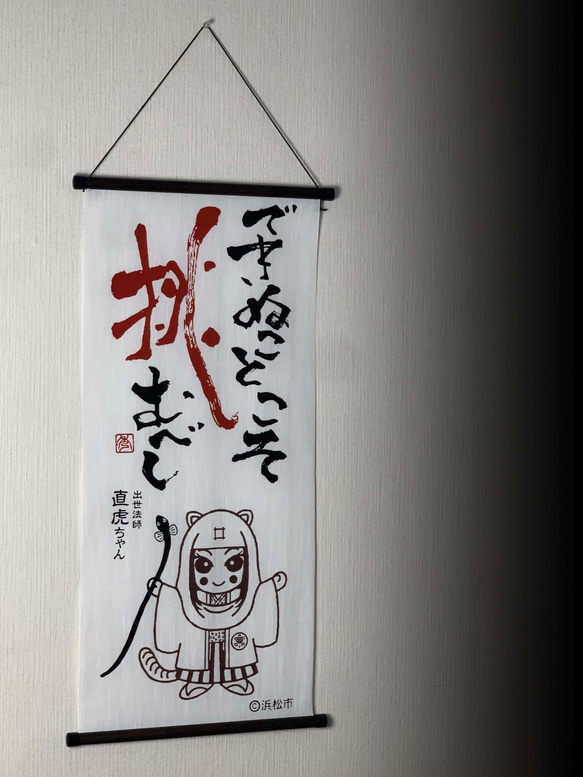 できぬことこそ
挑むべし
出世法師
直虎ちゃん
©浜松市